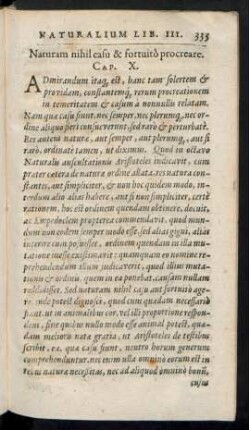 NATURALIUM LIB. III. 335
Naturam nihil casu & fortuitò procreare.
CAP. X.
ADmirandum itaq; est, hanc tam solertem &
providam, constantemq; rerum procreationem
in temeritatem & casum à nonnullis relatam.
Nam qua casu fiunt, nec semper, nec plerunq; nec or-
dine aliquo fieri consueverunt, sed rarò & perturbatè.
Res autem natura, aut semper, aut plerumq; aut si
rarò, ordinatè tamen, ut diximus. Quod in octavo
Naturalis auscultationis Aristoteles indicavit, cum
præter cætera de natura ordine allata, res natura con-
stantes, aut simpliciter, & non hoc quidem modo, in-
terdum alio alias habere, aut si non simpliciter, certè
rationem, hoc est ordinem quendam obtinere, docuit,
ac Empedoclem propterea commendavit, quod mun-
dum non eodem semper modo esse, sed alias gigni, alias
interire cum posuisset, ordinem quendam eu illa mu-
tatione inesse existimavit: quamquam eo nomine re-
prehendendum illum judicaverit, quod illius muta-
tionis & ordinis, quem in ea ponebat, causam nullam
reddidisset. Sed naturam nihil casu aut fortuitò age-
re, inde potest dignosci, quod cum quadam necessariò
fiant, ut in animalibus cor, vel illi proportione respon-
dens, sine quibus nullo modo esse animal potest, quæ-
dam melioris nota gratia, ut Aristoteles de testibus
scribit, ea, qua casu fiunt, neutro horum generum
comprehenduntur, nec enim ulla omninò eorum est in
rebus natura necessitas, nec ad aliquod omninò bonũ,